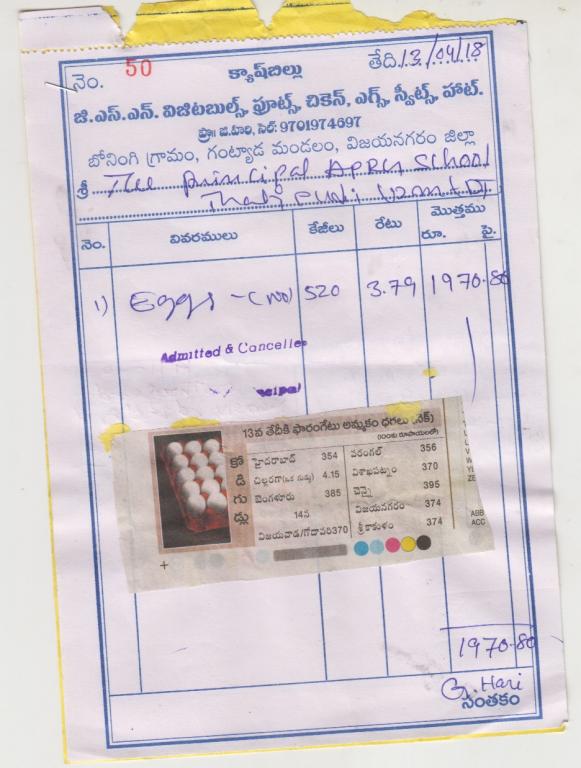 నెం. 50
క్యాష్‌బిల్లు
తేది.13/04/18
జి.ఎస్.ఎన్. విజిటబుల్స్, ఫ్రూట్స్, చికెన్, ఎగ్స్, స్వీట్స్, హాట్.
ప్రొ: జి.హరి, సెల్: 9701974697
బోనంగి గ్రామం, గంట్యాడ మండలం, విజయనగరం జిల్లా
శ్రీ The principal APRU School
నెం. వివరములు కేజీలు రేటు మొత్తము
రూ. పై.
1) Eggs - (NO) 520 3.79 1970-80
Admitted & Cancelle
13వ తేదీకి ఫారంగేటు అమ్మకం ధరలు (నెక్)
(100కు రూపాయలలో)
కోడిగుడ్లు
హైదరాబాద్ 354 వరంగల్ 356
చిల్లరగా(ఒక గుడ్డు) 4.15 విశాఖపట్నం 370
బెంగళూరు 385 చెన్నై 395
14న విజయనగరం 374
విజయవాడ/గోదావరి370 శ్రీకాకుళం 374
ABB
ACC
1970-80
G. Hari
సంతకం